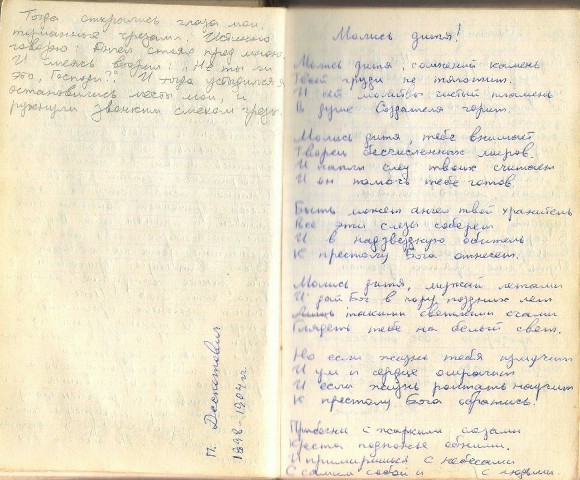 Тогда открылись глаза мои,
туманные грезами: Истинно
говорю: Ангел стоял пред мною.
И смеясь воприл: „Не ты ли
это, Господи?" И тогда
остановились мечты мои, и
рухнули звонким смехом грезы.
П. Деспотович
1898-1904 гг
Молись дитя!
Молись дитя, сомнений камень
Твоей груди не тяготит.
И твой молитвы чистый пламень
В душе Создателя горит.
Молись дитя, тебе внимает
Творец бесчисленных миров.
И капли слез твоих считает
И он помочь тебе готов
Быть может ангел твой хранитель
Все эти слезы соберет
И в надзвездную обитель
К престолу Бога отнесет.
Молись дитя, мужай летами
И дай Бог в пору поздних лет
такими светлыми очами
Глядеть тебе на белый свет.
Но если жизнь тебя измучит
И ум и сердце омрачит
И если жизнь роптать научит
К престолу Бога обратись.
с жаркими слезами
Креста подножье обними.
И примиришься с небесами
С самим собой и с людьми.